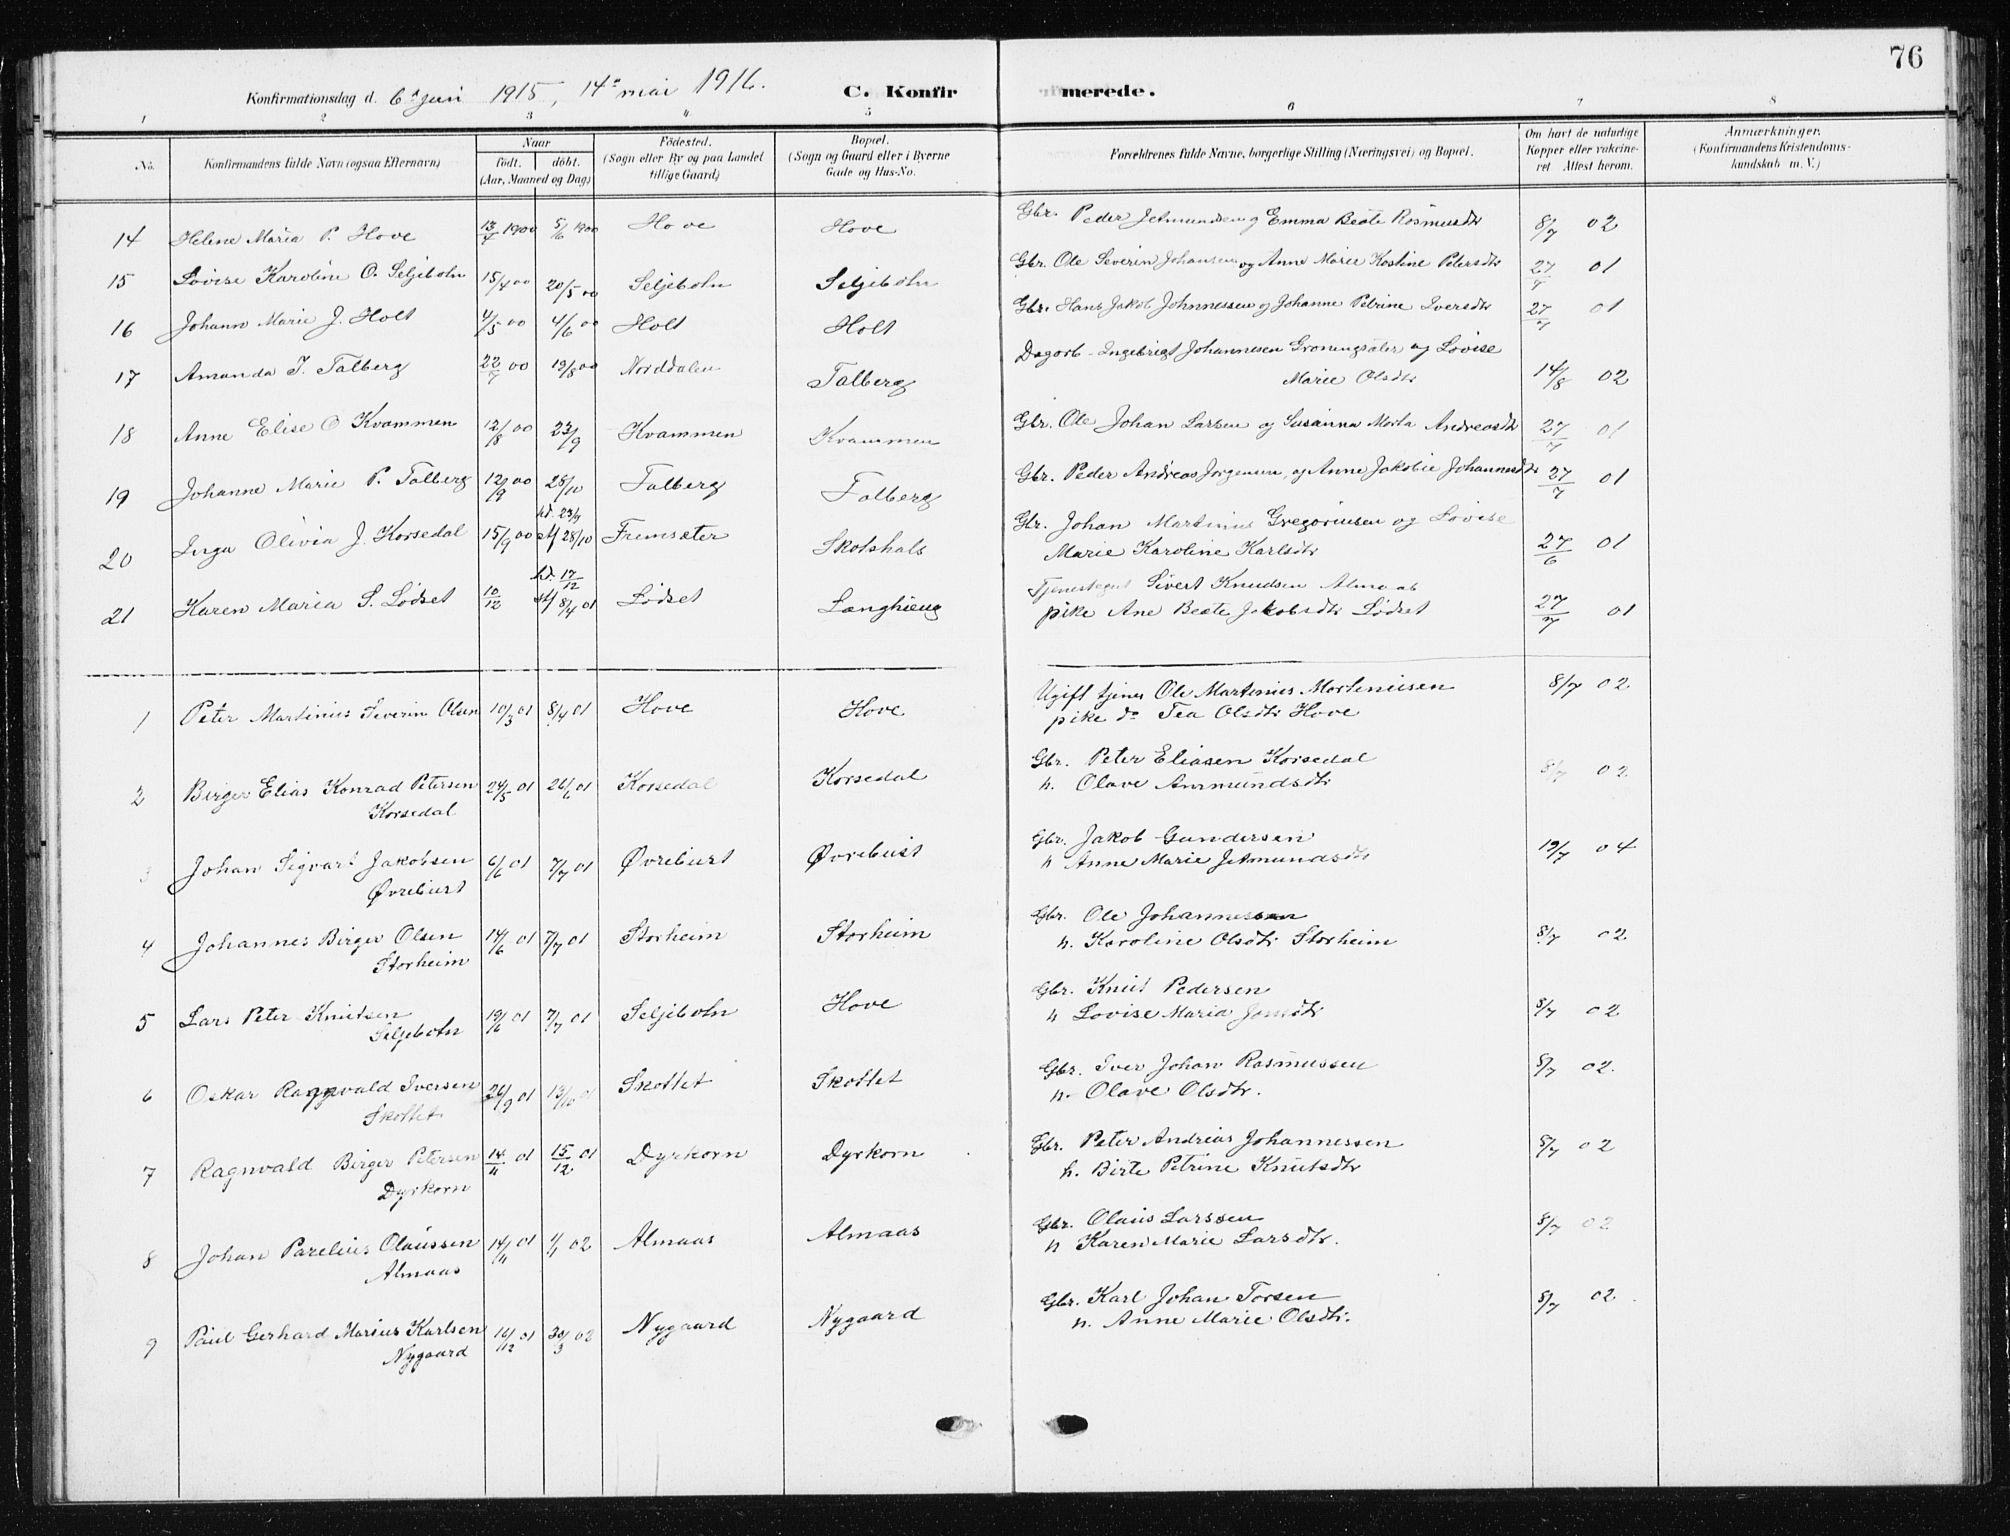 76
Konfirmationsdag d. 6te juni 1915, 14de mai 1916.
C. Konfirmerede.
1 2 3 4 5 6 7 8
No. Konfirmandens fulde Navn (ogsaa Efternavn) Naar født. døbt. (Aar, Maaned og Dag) Fødested. (Sogn eller By og paa Landet tillige Gaard) Bopæl. (Sogn og Gaard eller i Byerne Gade og Hus-No. Forældrenes fulde Navne, borgerlige Stilling (Næringsvei) og Bopæl. Om havt de naturlige Kopper eller vakcineret Attest herom. Anmærkninger. (Konfirmandens Kristendomskundskab m. V.)
14 Helene Maria P. Hove 13/4 1900 5/6 1900 Hove Hove Gbr. Peder Jetmundsen og Emma Beate Rasmusdtr 8/7 02
15 Lovise Karoline O. Seljebotn 15/4 00 20/5 00 Seljebotn Seljebotn Gbr. Ole Severin Johansen og Anne Marie Kostine Petersdtr 27/7 01
16 Johann Marie J. Holt 4/5 00 4/6 00 Holt Holt Gbr. Hans Jakob Johnnessen og Johanne Petrine Iversdtr 27/7 01
17 Amanda I. Talberg 22/7 00 19/8 00 Norddalen Talberg Dagarb. Ingebrigt Johannesen Groningsæter og Lovise
Marie Olsdtr 14/8 02
18 Anne Elise O Kvammen 12/8 00 23/9 Kvammen Kvammen Gbr. Ole Johan Larsen og Susanna Marta Andreasdtr 27/7 01
19 Johanne Marie P. Talberg 12/9 00 28/10 Talberg Talberg Gbr. Peder Andreas Jørgensen og Anne Jakobie Johannesdtr 27/7 01
20 Inga Olivia J. Korsedal 15/9 00 hd. 23/9 stf 28/10 Fremsæter Skotshals Gbr. Johan Martinus Gregoriusen og Lovise
Marie Karoline Karlsdtr 27/6 01
21 Karen Maria S. Lødset 10/12 hd. 17/12 stf 8/4 01 Lødset Langhaug Tjenestegut Sivert Knudsen Almo ab
pike Ane Beate Jakobsdtr Lødset 27/7 01
1 Peter Martinius Severin Olsen 10/3 01 8/4 01 Hove Hove Ugift tjener Ole Martinius Morteniusen
pike do Tea Olsdtr Hove 8/7 02
2 Birger Elias Konrad Petersen
Korsedal 24/5 01 26/6 01 Korsedal Korsedal Gbr. Peter Eliasen Korsedal
h. Olave Ammundsdtr 8/7 02
3 Johan Sigvart Jakobsen
Øvrebust 6/6 01 7/7 01 Øvrebust Øvrebust Gbr. Jakob Gundersen
h Anne Marie Jetmundsdtr 19/7 04
4 Johannes Birger Olsen
Storheim 14/6 01 7/7 01 Storheim Storheim Gbr. Ole Johannessen
h. Karoline Olsdtr Storheim 8/7 02
5 Lars Peter Knutsen
Seljebotn 19/6 01 7/7 01 Seljebotn Hove Gbr. Knut Pedersen
h Lovise Maria Jonsdtr 8/7 02
6 Oskar Ragnvald Iversen
Skottet 26/9 01 13/10 01 Skottet Skottet Gbr. Iver Johan Rasmussen
h. Olave Olsdtr. 8/7 02.
7 Ragnvald Birger Petersen
Dyrkorn 14/11 01 15/12 01 Dyrkorn Dyrkorn Gbr. Peter Andrias Johannessen
h. Birte Petrine Knutsdtr 8/7 02
8 Johan Parelius Olaussen
Almaas 14/11 01 1/1 02 Almaas Almaas Gbr. Olaus Larssen
h Karen Marie Larsdtr. 8/7 02
9 Paul Gerhard Marius Karlsen
Nygaard 16/12 01 30/3 02 Nygaard Nygaard Gbr. Karl Johan Torsen
h. Anne Marie Olsdtr. 8/7 02